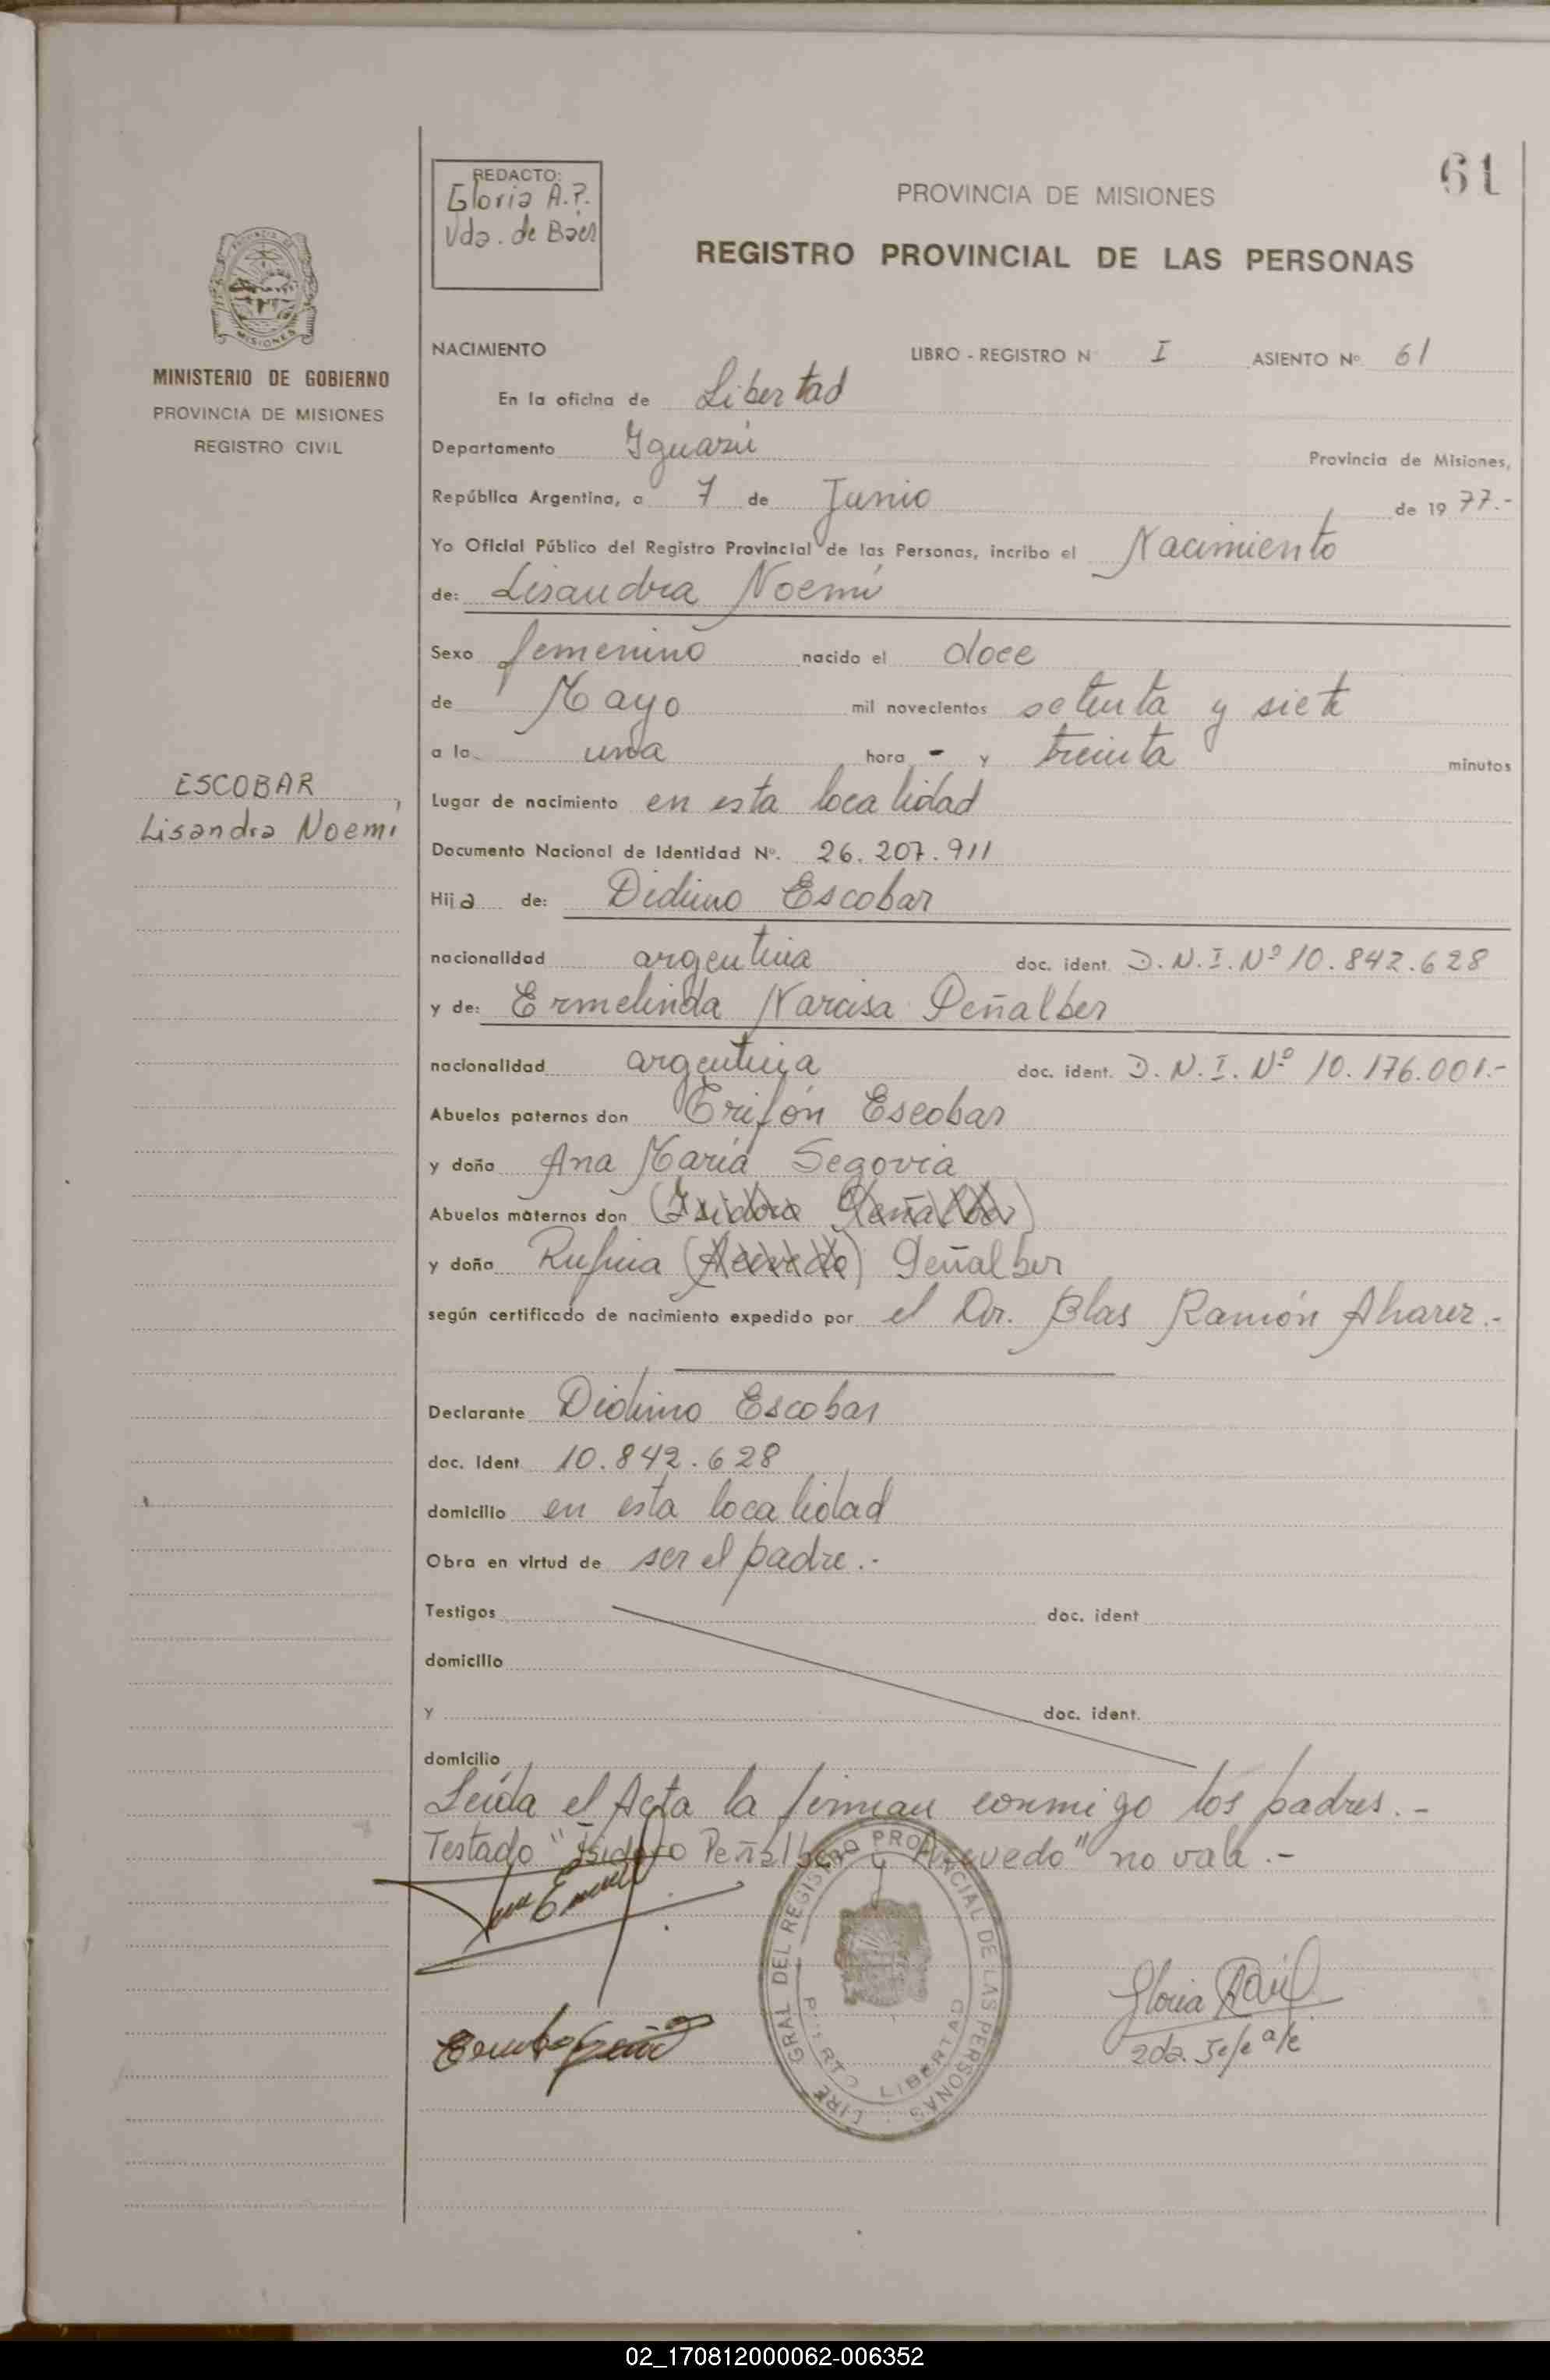 61
REDACTO:
Gloria A.P.
Vda. de Báez
PROVINCIA DE MISIONES
REGISTRO PROVINCIAL DE LAS PERSONAS
MISIONES
MINISTERIO DE GOBIERNO
PROVINCIA DE MISIONES
REGISTRO CIVIL
ESCOBAR,
Lisandra Noemí
NACIMIENTO LIBRO - REGISTRO N° I ASIENTO Nº. 61
En la oficina de Libertad
Departamento Iguazú Provincia de Misiones,
República Argentina, a 7 de Junio de 19 77.-
Yo Oficial Público del Registro Provincial de las Personas, incribo el Nacimiento
de: Lisandra Noemí
Sexo femenino nacido el doce
de Mayo mil novecientos setenta y siete
a la una hora - y treinta minutos
Lugar de nacimiento en esta localidad
Documento Nacional de Identidad Nº. 26.207.911
Hija de: Didimo Escobar
nacionalidad argentina doc. ident. D.N.I. Nº 10.842.628
y de: Ermelinda Narcisa Peñalber
nacionalidad argentina doc. ident. D.N.I. Nº 10.176.001.-
Abuelos paternos don Trifón Escobar
y doña Ana María Segovia
Abuelos maternos don (Isidoro Peñalber)
y doña Rufina (Acevedo) Peñalber
según certificado de nacimiento expedido por el Dr. Blas Ramón Alvarez.-
Declarante Didimo Escobar
doc. Ident 10.842.628
domicilio en esta localidad
Obra en virtud de ser el padre.-
Testigos doc. ident
domicilio
y doc. ident.
domicilio
Leída el Acta la firman conmigo los padres.-
Testado "Isidoro Peñalber y Acevedo" no vale.-
GRAL DEL REGISTRO PROVINCIAL DE LAS PERSONAS
PUERTO LIBERTAD
Gloria
2da. Jefe a/c
02_170812000062-006352